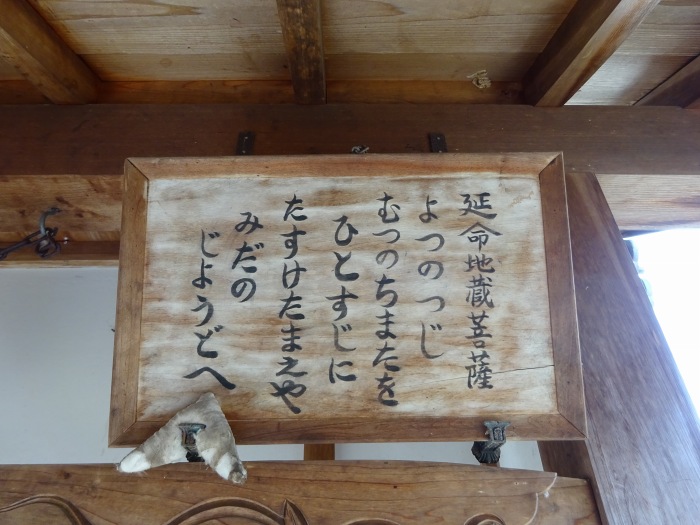 延命地蔵菩薩
よつのつじ
むつのちまたを
ひとすじに
たすけたまえや
みだの
じようどへ